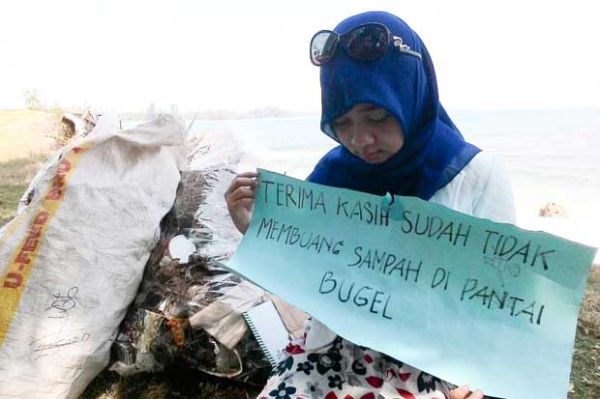 U-FEED
TERIMA KASIH SUDAH TIDAK
MEMBUANG SAMPAH DI PANTAI
BUGEL